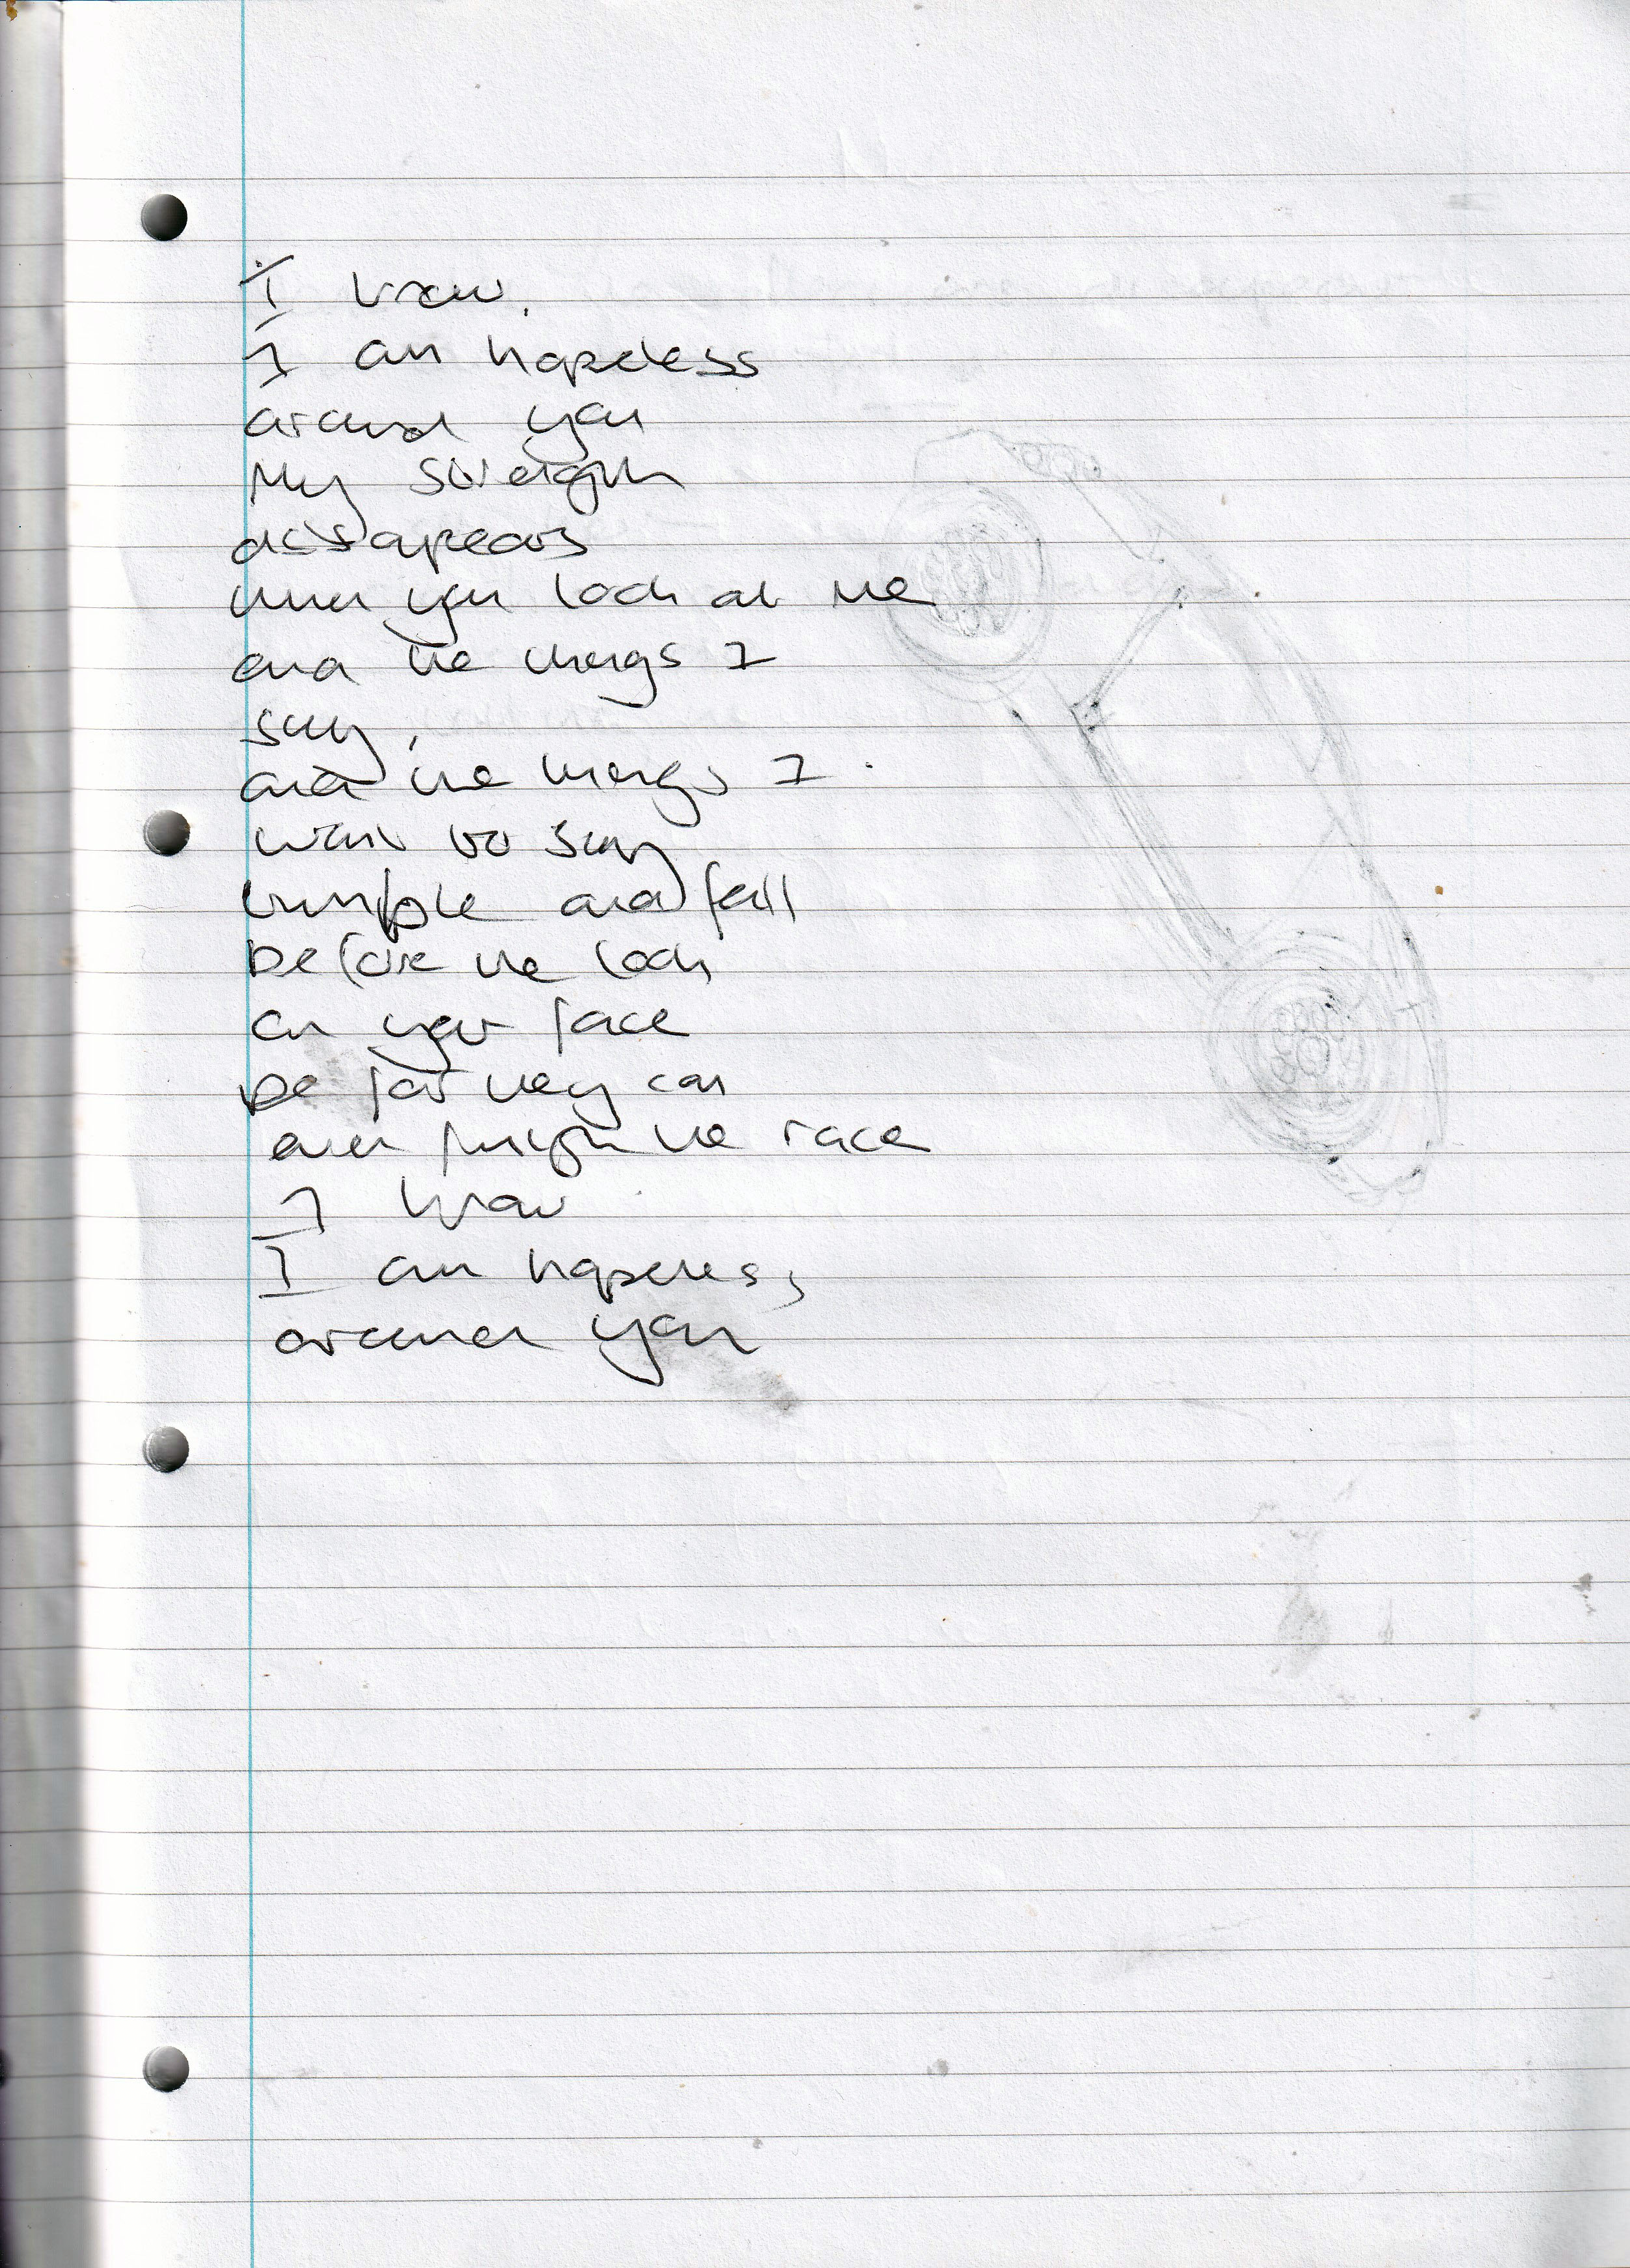 I know.
I am hopeless
around you
My strength
dissapears
when you look at me
and the things I
say,
and the things I
want to say
crumple and fall
before the look
on your face
before they can
even finish the race
I know
I am hopeless
around you